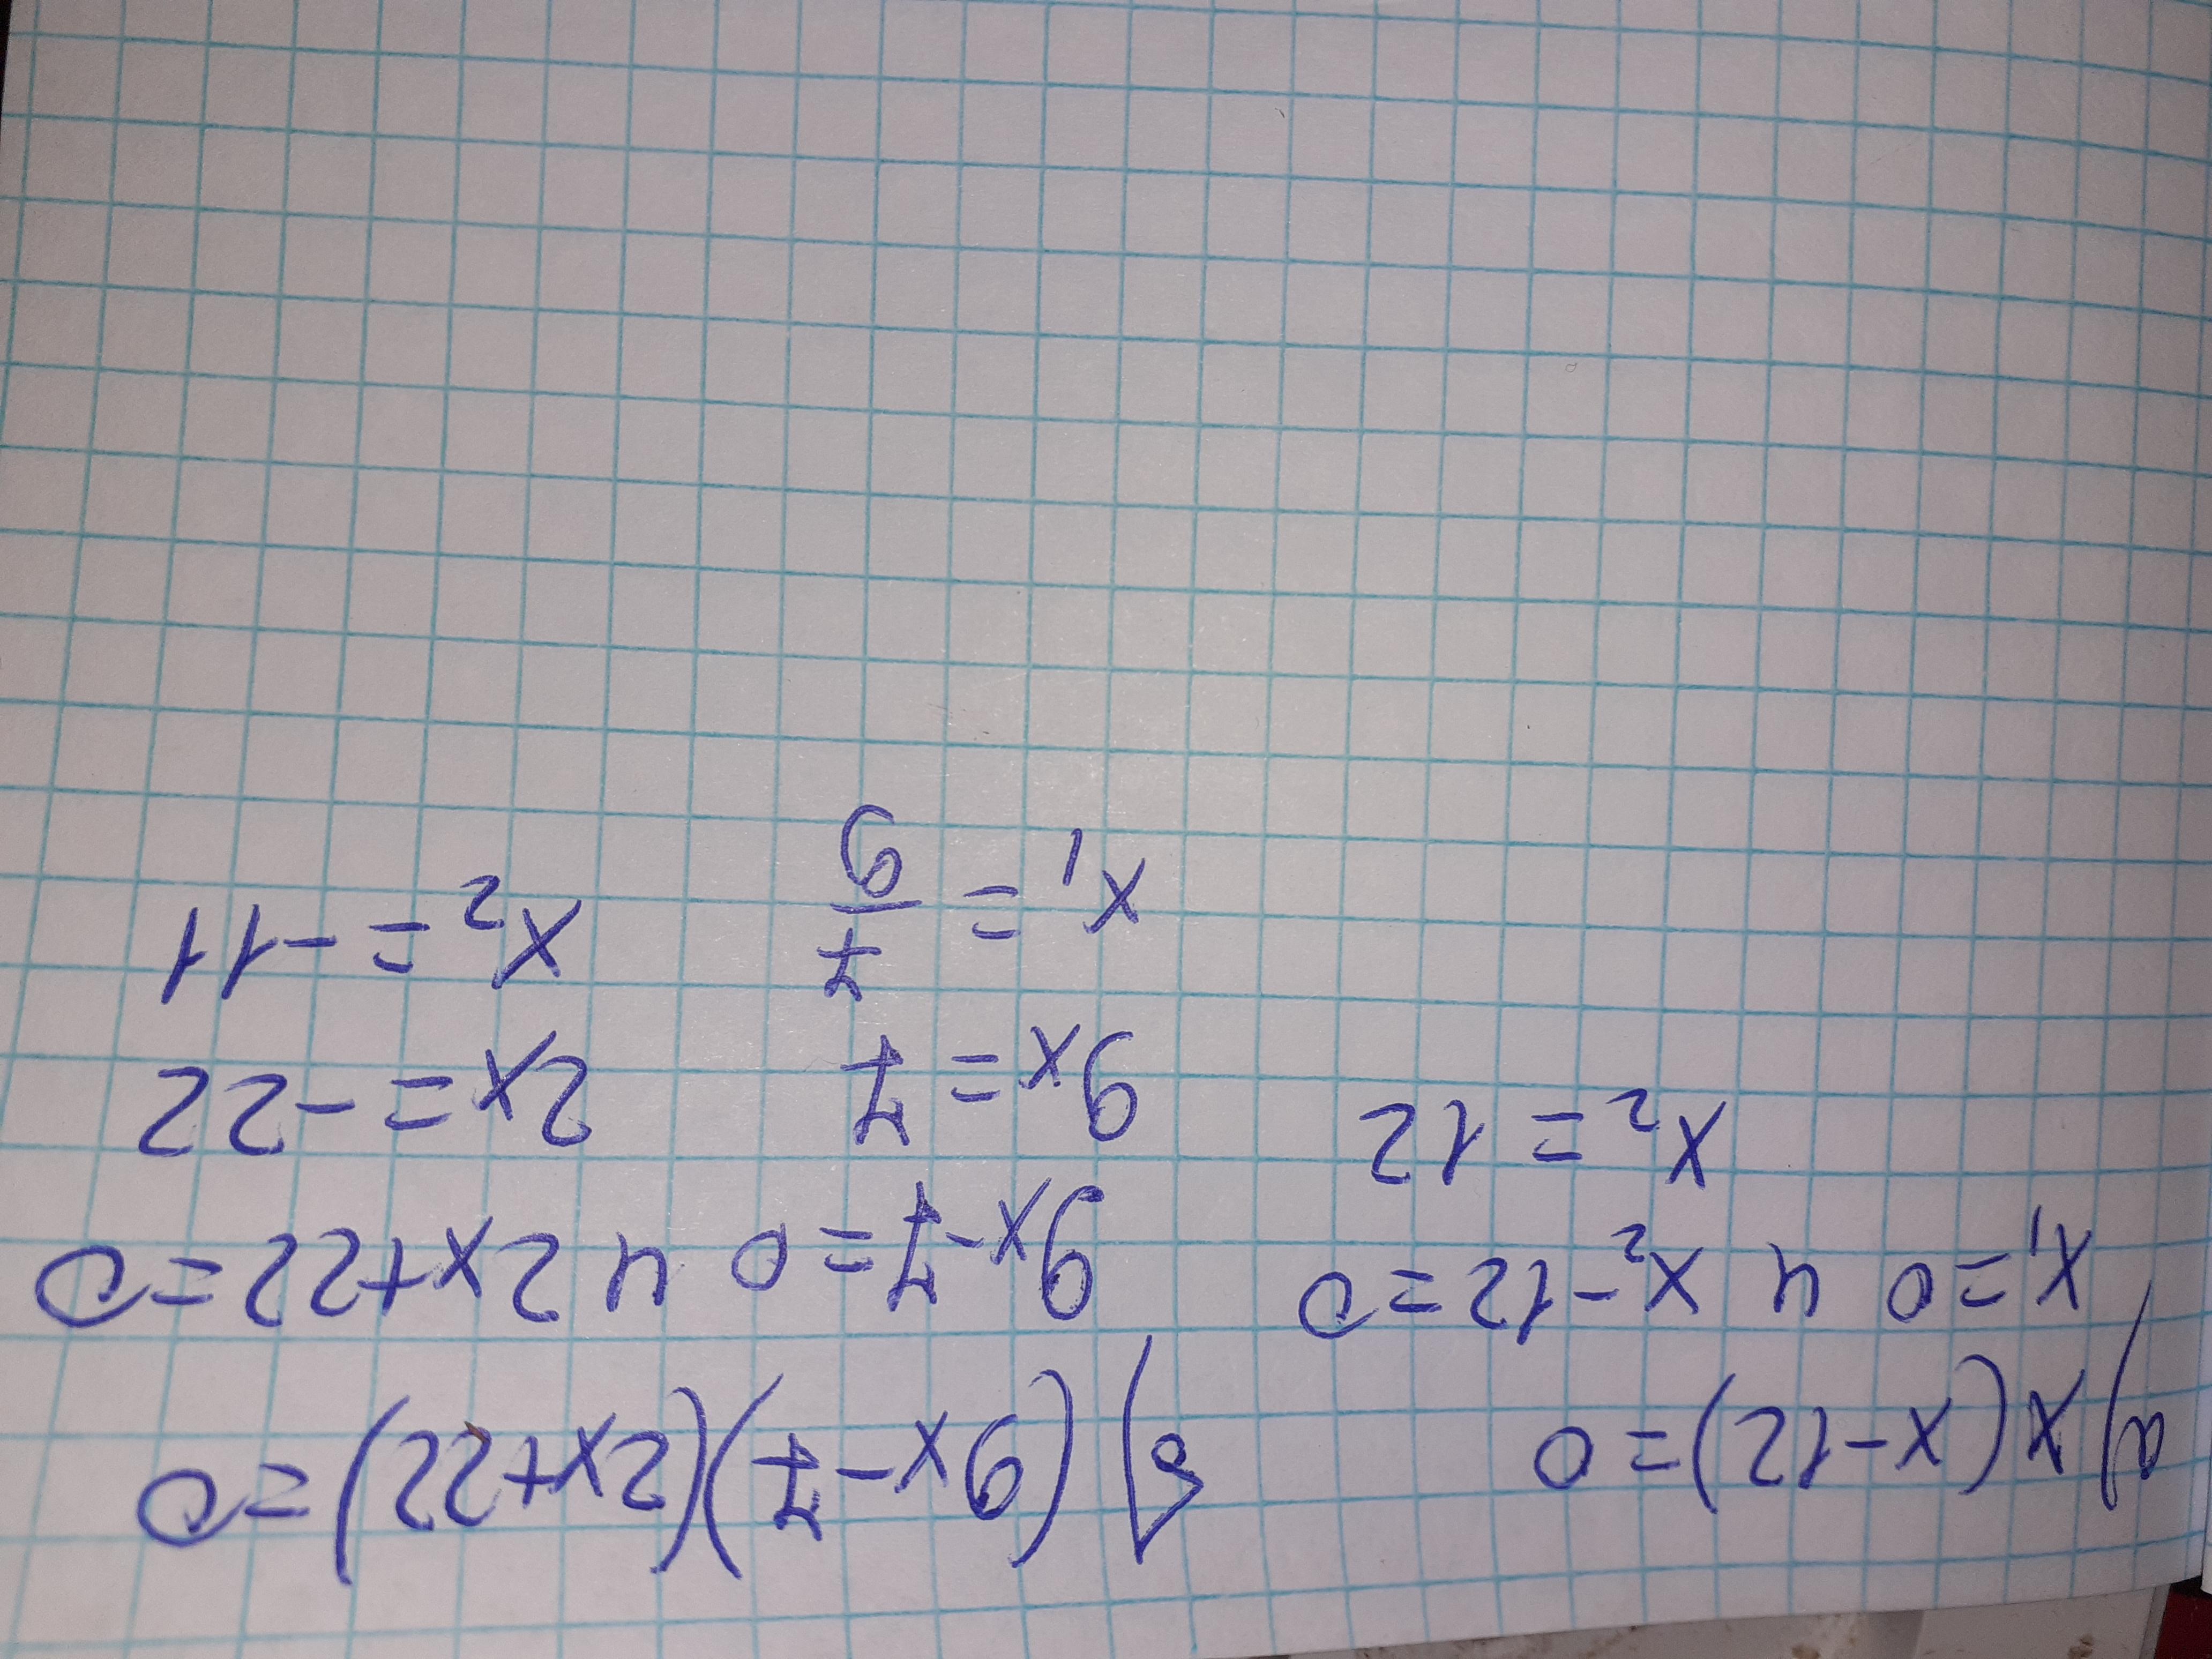 а) x(x-12)=0
x₁=0 и x₂-12=0
x₂=12
б) (9x-7)(2x+22)=0
9x-7=0 и 2x+22=0
9x=7 2x=-22
x₁=7/9 x₂=-11